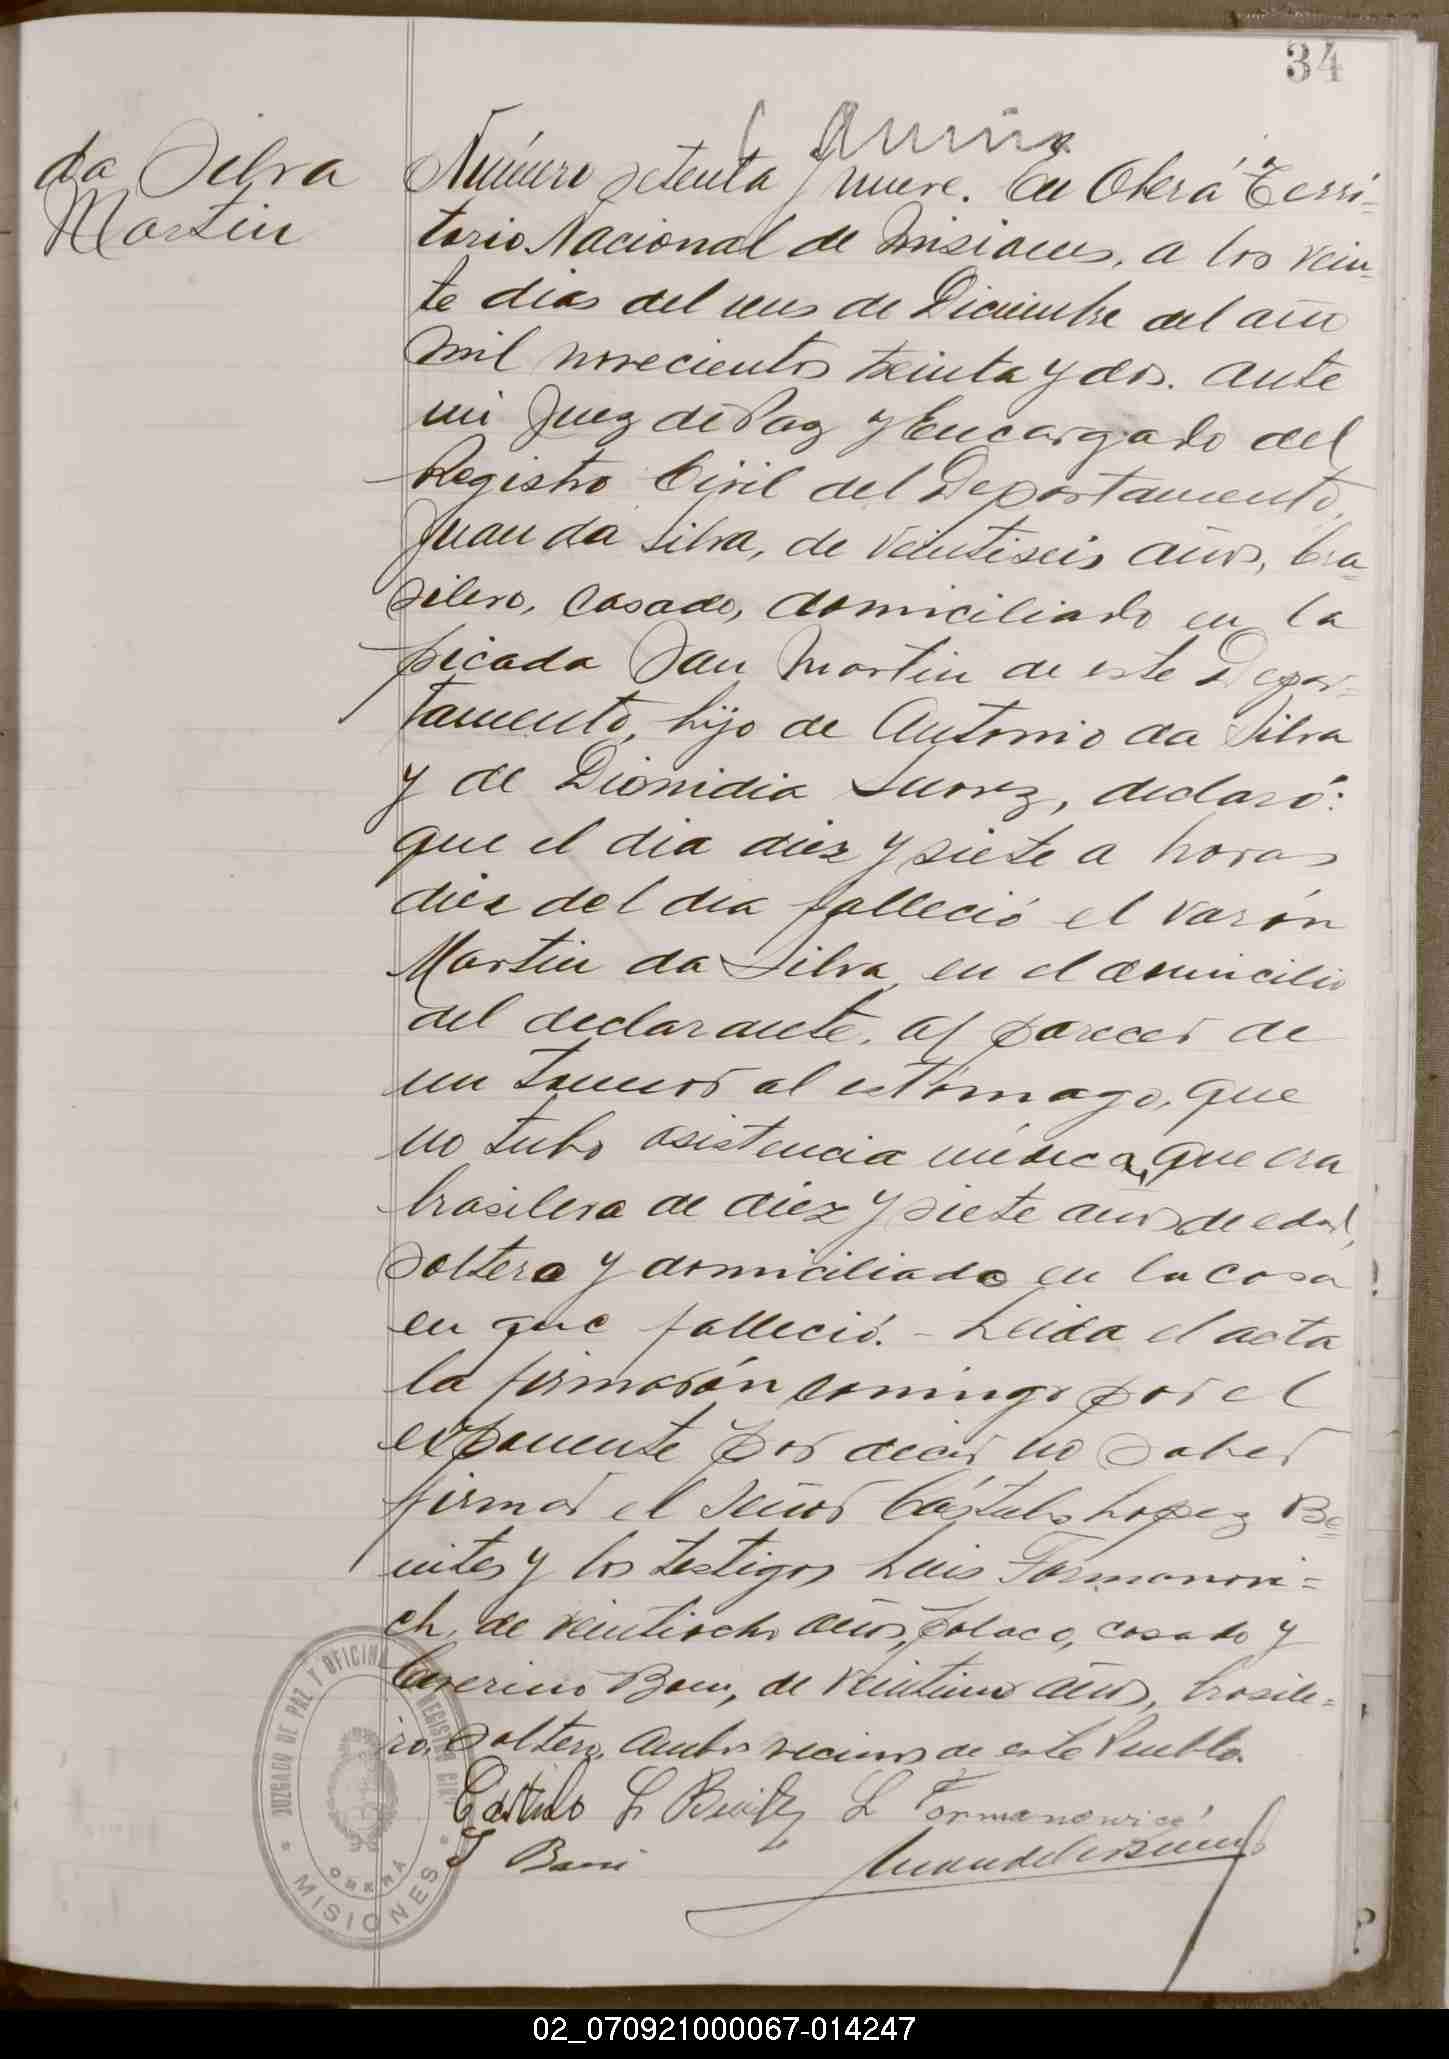 34
da Silva
Martin
Número setenta y nueve. En Oberá Terri=
torio Nacional de Misiones, a los vein=
te dias del mes de Diciembre del año
mil novecientos treinta y dos. Ante
mi Juez de Paz y Encargado del
Registro Civil del Departamento,
Juan da Silva, de veintiseis años, bra=
silero, casado, domiciliado en la
picada San Martin de este Depar=
tamento, hijo de Antonio da Silva
y de Dionidia Suarez, declaró:
que el dia diez y siete a horas
diez del dia falleció el varón
Martin da Silva, en el domicilio
del declarante, al parecer de
un tumor al estómago, que
no tubo asistencia médica, que era
brasilera de diez y siete años de edad,
soltero y domiciliado en la casa
en que falleció. - Leida el acta
la firmarón conmigo por el
exponente por decir no saber
firmar el Señor Cástulo Lopez Be=
nites y los testigos Luis Formanovi=
ch, de veintiocho años, polaco, casado y
Severino Bam, de veintiun años, brasile=
ro, soltero, ambos vecinos de este Pueblo.
Castulo L Benitez L Formanowicz
S Bam
JUZGADO DE PAZ Y OFICINA REGISTRO CIVIL
OBERA
MISIONES
02_070921000067-014247